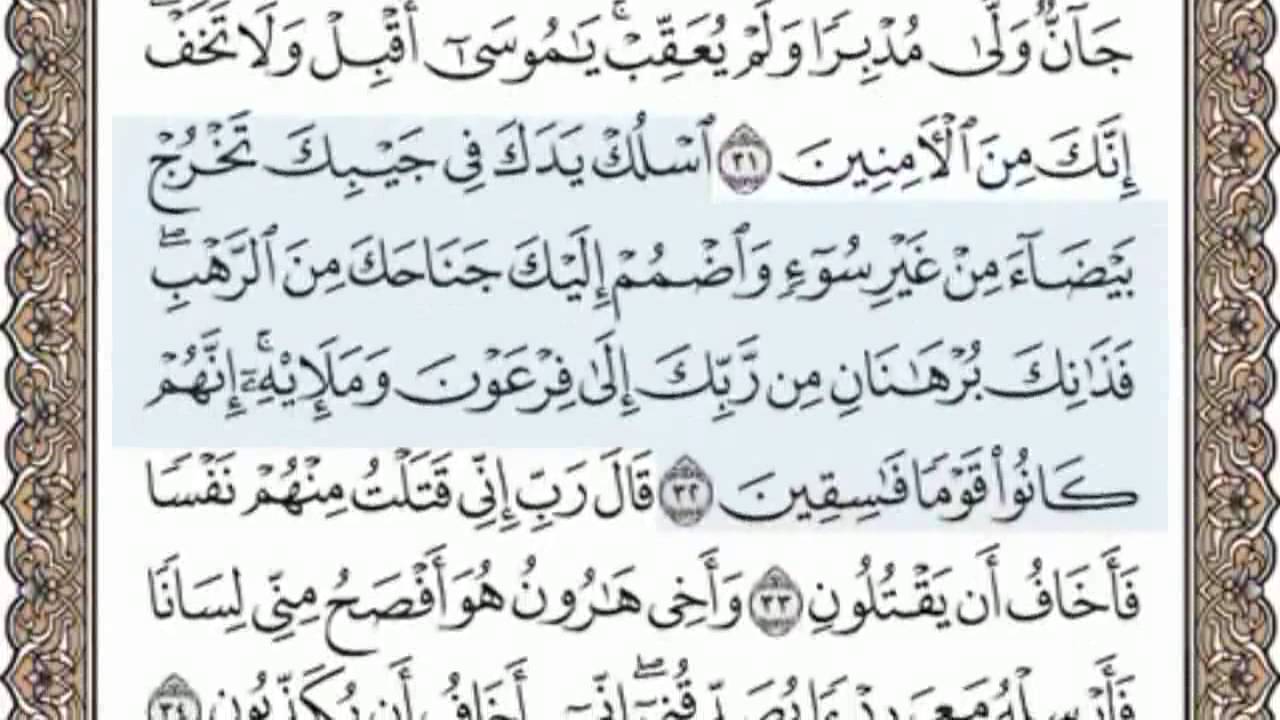 جَآنٌّ وَلَّىٰ مُدْبِرًا وَلَمْ يُعَقِّبْ ۚ يَٰمُوسَىٰٓ أَقْبِلْ وَلَا تَخَفْ ۖ
إِنَّكَ مِنَ ٱلْأَمِنِينَ ٣١ ٱسْلُكْ يَدَكَ فِى جَيْبِكَ تَخْرُجْ
بَيْضَآءَ مِنْ غَيْرِ سُوٓءٍ وَٱضْمُمْ إِلَيْكَ جَنَاحَكَ مِنَ ٱلرَّهْبِ ۖ
فَذَٰنِكَ بُرْهَٰنَانِ مِن رَّبِّكَ إِلَىٰ فِرْعَوْنَ وَمَلَإِي۟هِۦٓ ۚ إِنَّهُمْ
كَانُوا۟ قَوْمًا فَٰسِقِينَ ٣٢ قَالَ رَبِّ إِنِّى قَتَلْتُ مِنْهُمْ نَفْسًا
فَأَخَافُ أَن يَقْتُلُونِ ٣٣ وَأَخِى هَٰرُونُ هُوَ أَفْصَحُ مِنِّى لِسَانًا
فَأَرْسِلْهُ مَعِىَ رِدْءًا يُصَدِّقُنِىٓ ۖ إِنِّىٓ أَخَافُ أَن يُكَذِّبُونِ ٣٤